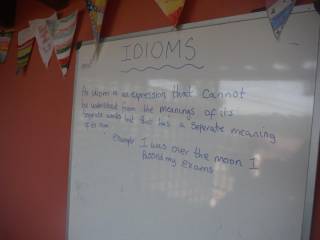 IDIOMS
An idiom is an expression that cannot
be understood from the meanings of its
seperate words but that has a seperate meaning
of its own.
Example I was over the moon I
passed my exams